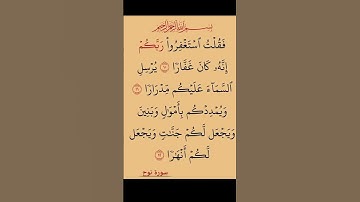 بسم الله الرحمن الرحيم
فَقُلْتُ ٱسْتَغْفِرُوا۟ رَبَّكُمْ
إِنَّهُۥ كَانَ غَفَّارًا ١٠ يُرْسِلِ
ٱلسَّمَآءَ عَلَيْكُم مِّدْرَارًا ١١
وَيُمْدِدْكُم بِأَمْوَٰلٍ وَبَنِينَ
وَيَجْعَل لَّكُمْ جَنَّٰتٍ وَيَجْعَل
لَّكُمْ أَنْهَٰرًا ١٢
سورة نوح